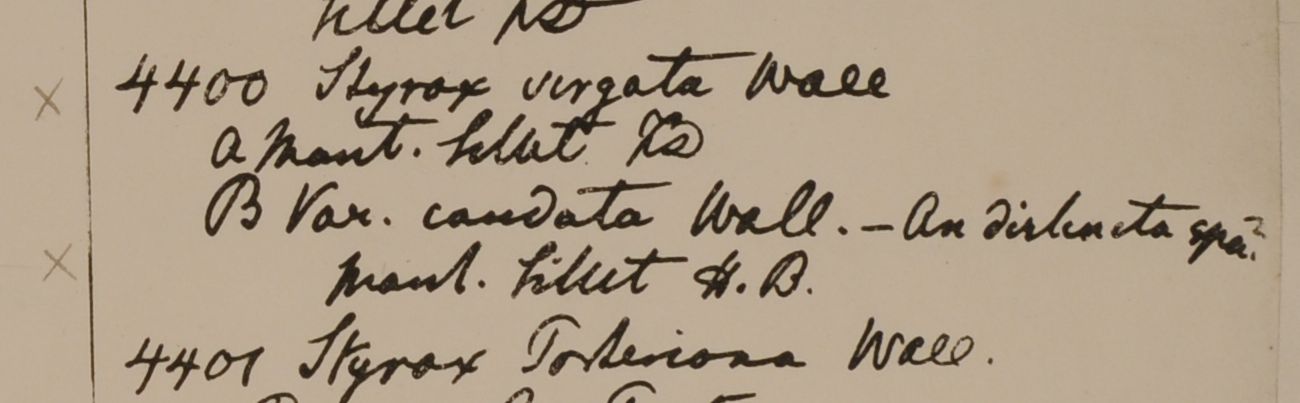 Sillet
4400 Styrax virgata Wall
a Mont. Sillet FDS
B Var. caudata Wall. – An distincta spa?
Mont. Sillet H.B.
4401 Styrax Porteriana Wall.